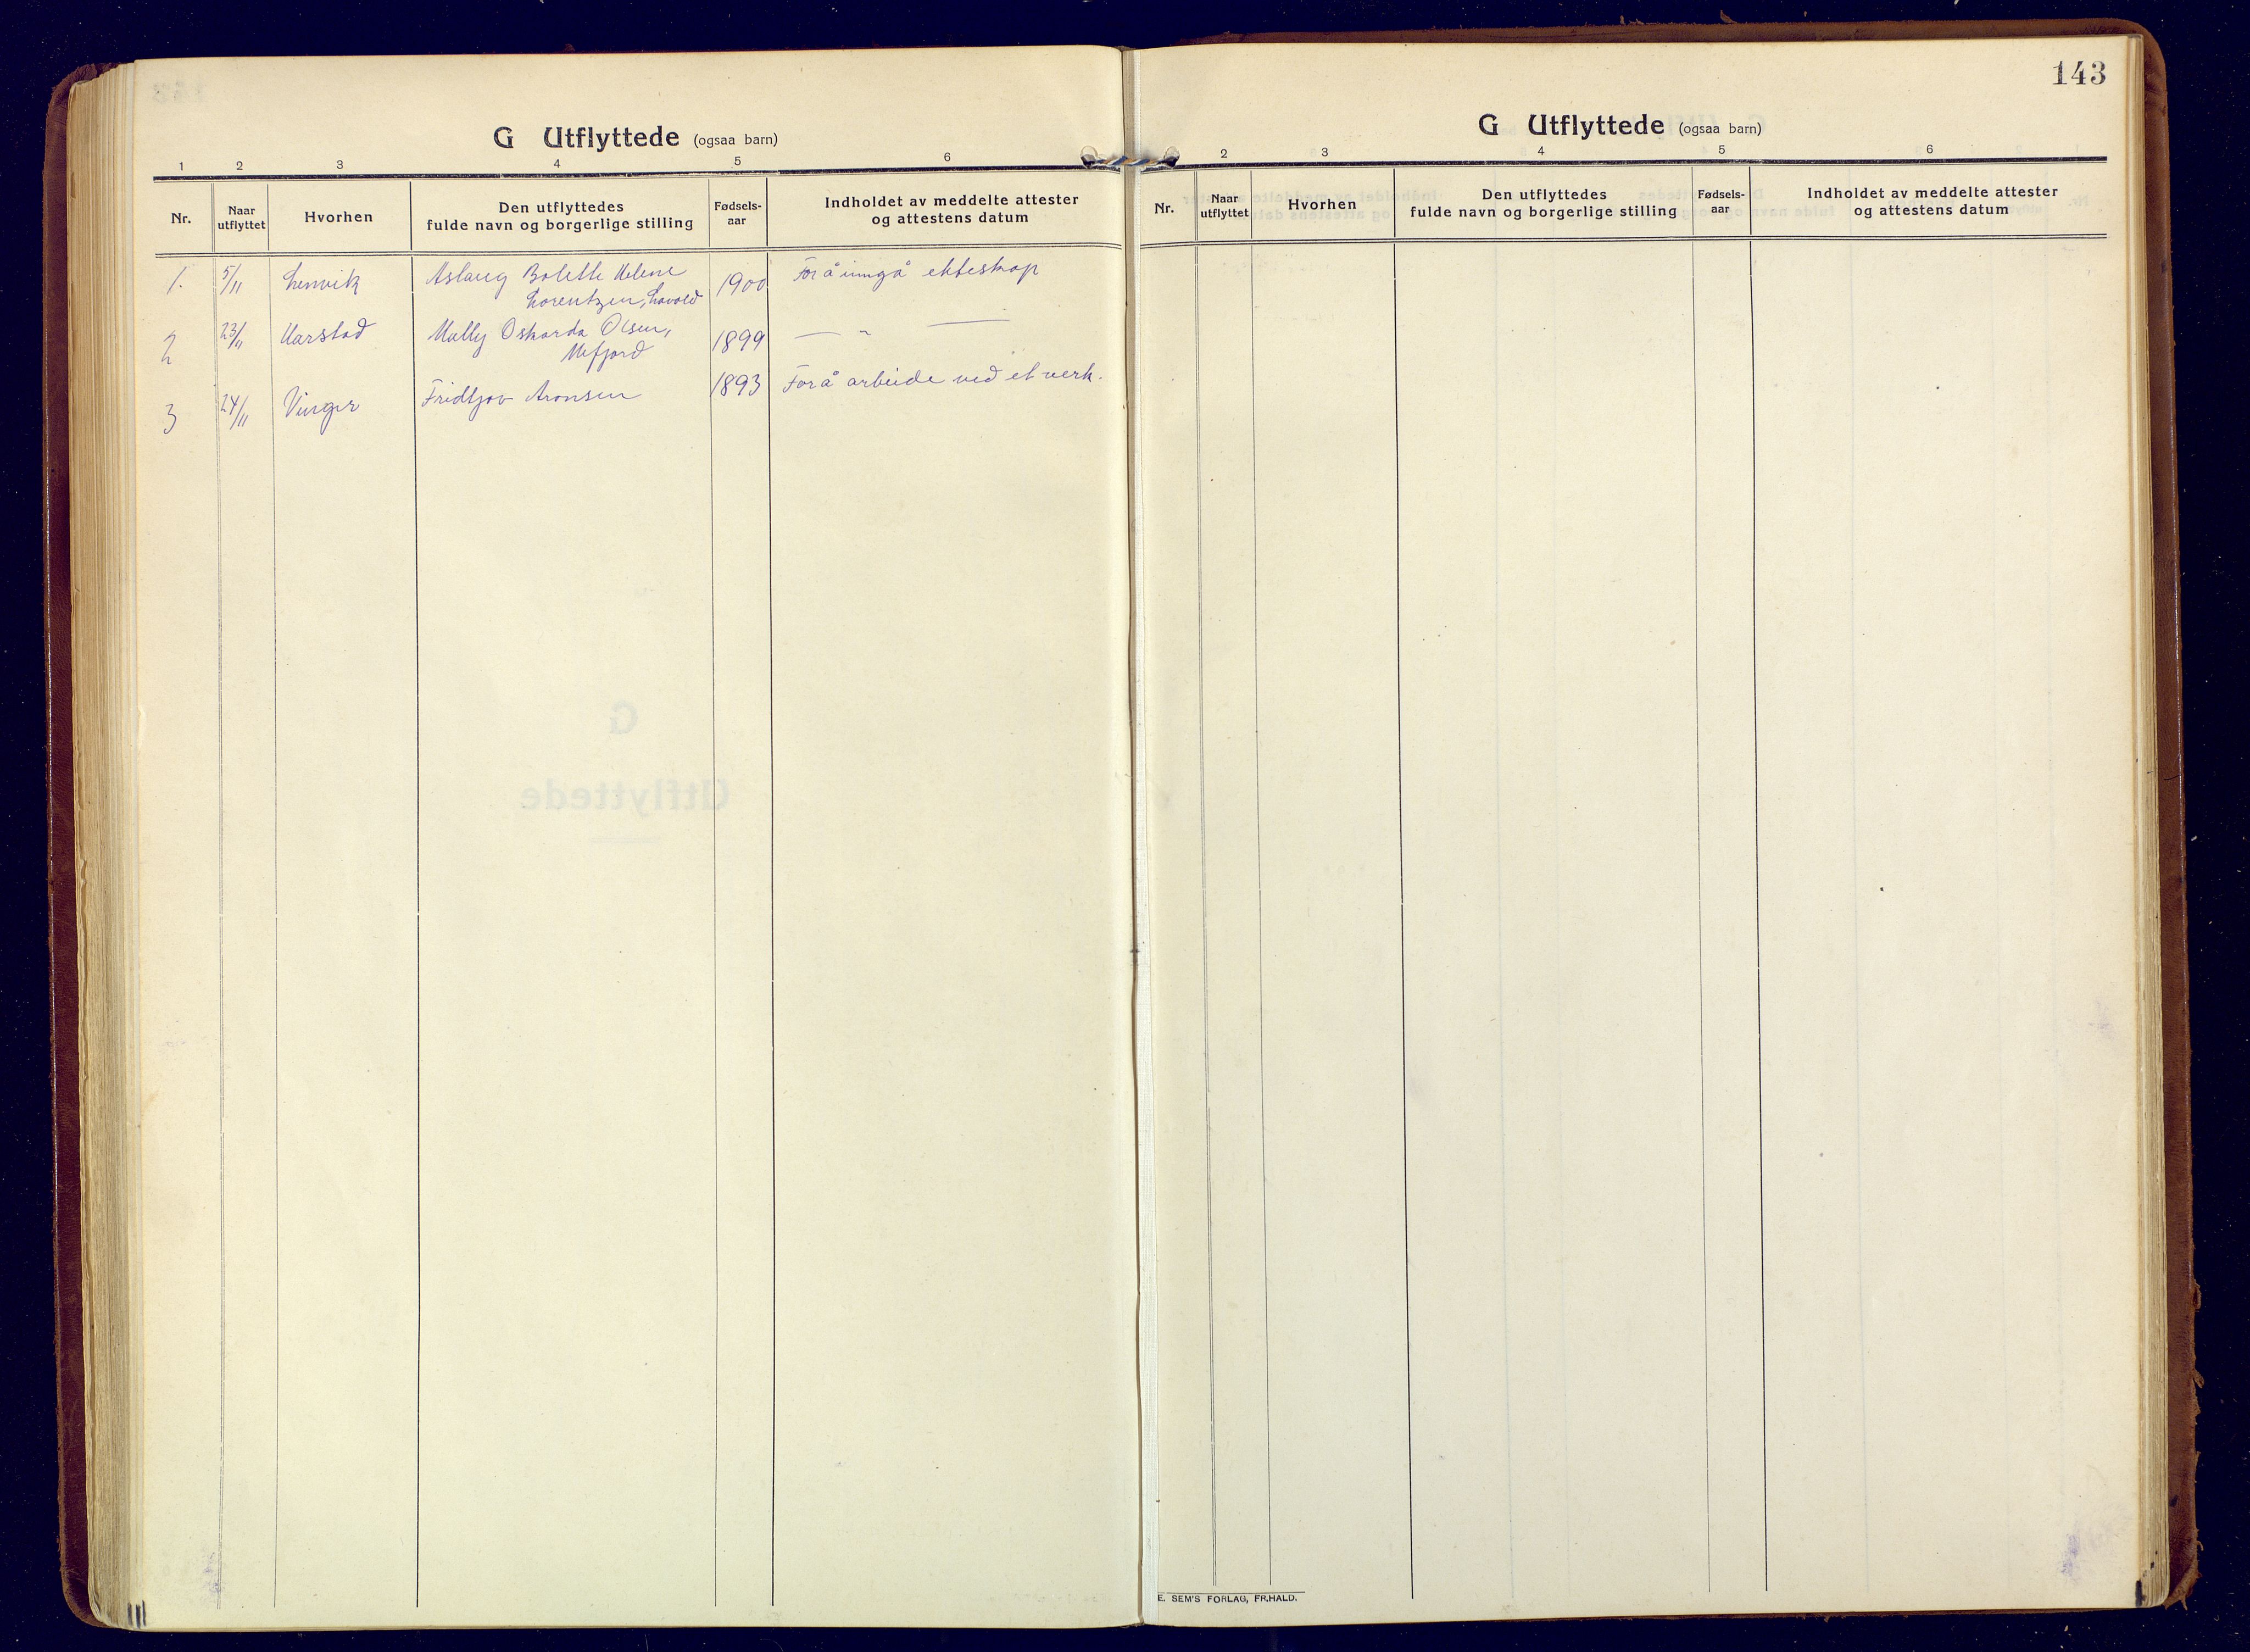 G Utflyttede (ogsaa barn)
1 2 3 4 5 6
Nr. Naar utflyttet Hvorhen Den utflyttedes fulde navn og borgerlige stilling Fødsels-aar Indholdet av meddelte attester og attestens datum
1. 5/11 Lenvik Aslaug Bolette Helene 1900 For å inngå ekteskap
Lorentzen, Lavold
2 23/11 Harstad Mally Oskarda Olsen, 1899 — " —
Mefjord
3 24/11 Vinger Fridtjov Aronsen 1893 For å arbeide ved et verk.
143
G Utflyttede (ogsaa barn)
2 3 4 5 6
Nr. Naar utflyttet Hvorhen Den utflyttedes fulde navn og borgerlige stilling Fødsels-aar Indholdet av meddelte attester og attestens datum
E. SEM'S FORLAG, FR.HALD.